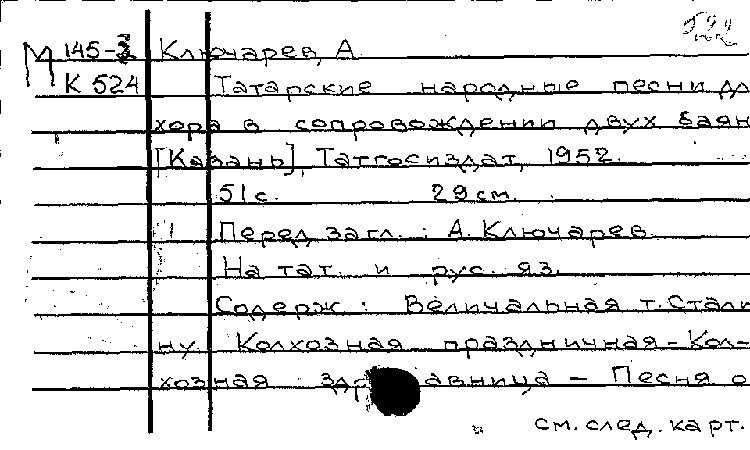 М 145-3 Ключарев, А.
К 524 Татарские народные песни дл
хора в сопровождении двух баян
[Казань], Татгосиздат, 1952.
51 с. 29 см.
Перед загл.: А. Ключарев
На тат. и рус. яз.
Содерж: Величальная т. Стали
ну Колхозная праздничная - Кол-
хозная здр авница - Песня о
см. след. карт.